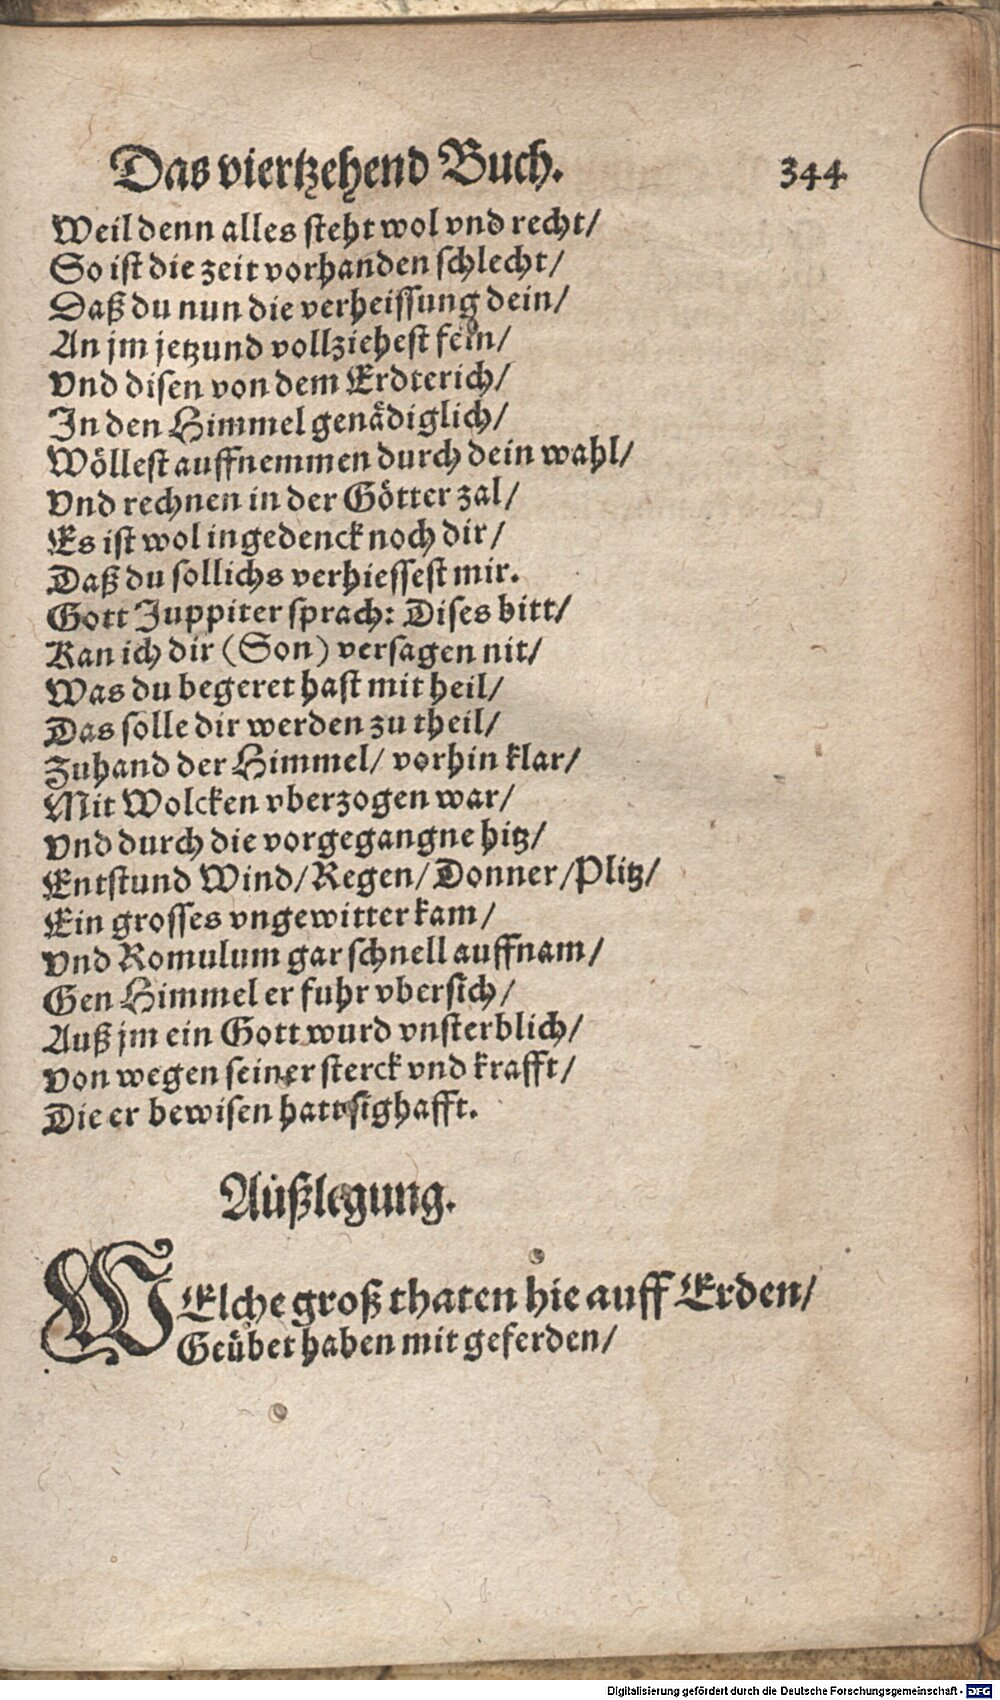 Das viertzehend Buch. 344
Weil denn alles steht wol vnd recht/
So ist die zeit vorhanden schlecht/
Daß du nun die verheissung dein/
An jm jetzund vollziehest fein/
Vnd disen von dem Erdterich/
In den Himmel genädiglich/
Wöllest auffnemmen durch dein wahl/
Vnd rechnen in der Götter zal/
Es ist wol ingedenck noch dir/
Daß du sollichs verhiessest mir.
Gott Juppiter sprach: Dises bitt/
Kan ich dir (Son) versagen nit/
Was du begeret hast mit heil/
Das solle dir werden zu theil/
Zuhand der Himmel/ vorhin klar/
Mit Wolcken vberzogen war/
Vnd durch die vorgegangne hitz/
Entstund Wind/ Regen/ Donner/ Plitz/
Ein grosses vngewitter kam/
Vnd Romulum gar schnell auffnam/
Gen Himmel er fuhr vbersich/
Auß jm ein Gott wurd vnsterblich/
Von wegen seiner sterck vnd krafft/
Die er bewisen hatt sighafft.
Außlegung.
WElche groß thaten hie auff Erden/
Geübet haben mit geferden/
Digitalisierung gefördert durch die Deutsche Forschungsgemeinschaft - DFG